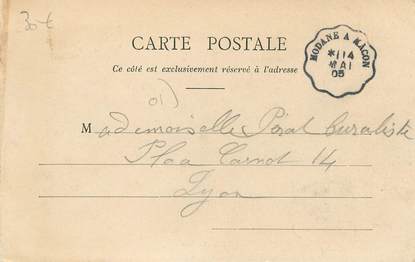 30 €
CARTE POSTALE
Ce côté est exclusivement réservé à l'adresse
MODANE A MACON
*114
MAI
05
01)
Mademoiselle Péral buraliste
Place Carnot 14
Lyon